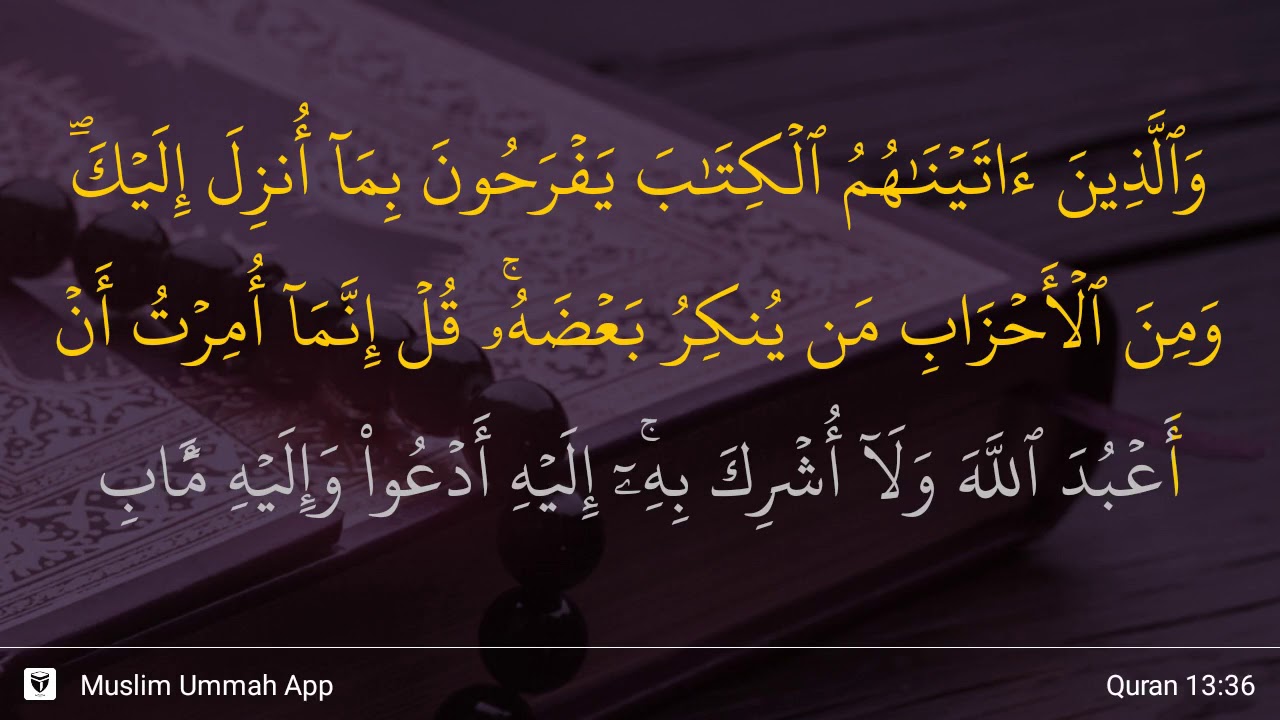 وَٱلَّذِينَ ءَاتَيْنَـٰهُمُ ٱلْكِتَـٰبَ يَفْرَحُونَ بِمَآ أُنزِلَ إِلَيْكَ ۖ
وَمِنَ ٱلْأَحْزَابِ مَن يُنكِرُ بَعْضَهُۥ ۚ قُلْ إِنَّمَآ أُمِرْتُ أَنْ
أَعْبُدَ ٱللَّهَ وَلَآ أُشْرِكَ بِهِۦٓ ۚ إِلَيْهِ أَدْعُوا۟ وَإِلَيْهِ مَـَٔابِ
Muslim Ummah App
Quran 13:36